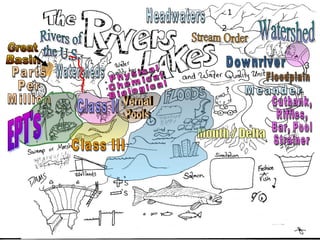 The
Rivers
Lakes
and Water Quality Unit
Headwaters
Watershed
Stream Order
1
2
Rivers of
the U.S.
Great
Basin
Parts
Per
Million
Watersheds
Water
Quality
Physical
Chemical
Biological
Downriver
Floodplain
Meander
Cutbank,
Riffles,
Bar, Pool
Strainer
Class V
Vernal
Pools
FLOODS
EPT's
Class III
Mouth / Delta
Swamp or Marsh
Wetlands
DAMS
+'s
-'s
Salmon
Simulation
Fashion
a
Fish